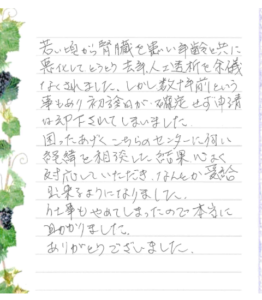 若い頃から腎臓を患い年齢と共に
悪化してとうとう去年人工透析を余儀
なくされました。しかし数十年前という
事もあり初診日が確定せず申請
は却下されてしまいました
困ったあげくこちらのセンターに伺い
経緯を相談した結果 心よく
対応していただき、なんとか受給
出来るようになりました。
仕事もやめてしまったので本当に
助かりました。
ありがとうございました。